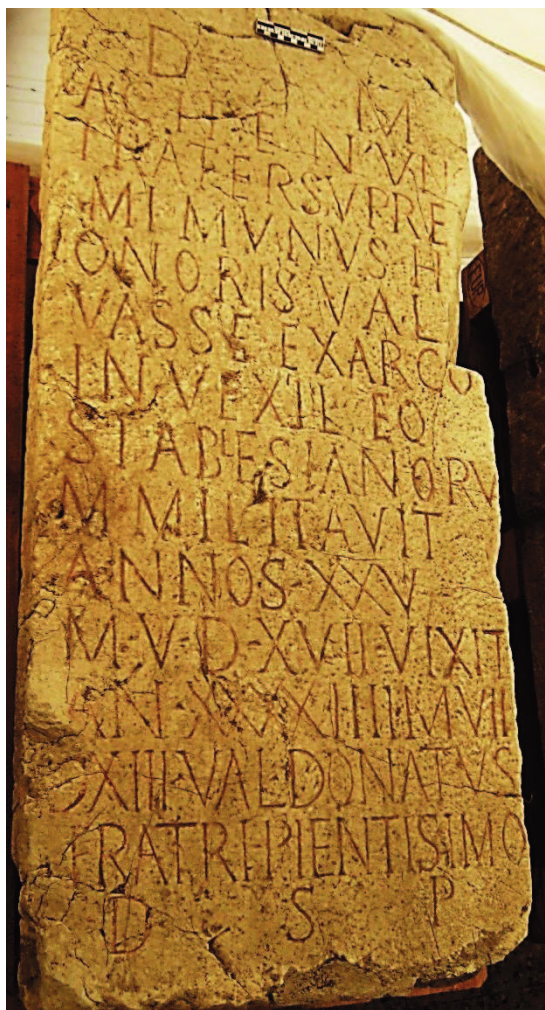 D M
FRATER SVPRE
MI MVNVS H
ONORIS VAL
VASSE EXARCO
IN VEXIL EQ
STABESIANORV
M MILITAVIT
ANNOS XXV
M V D XVII VIXIT
AN XXXXIIII M VII
D XIII VAL DONATVS
FRATRE PIENTISIMO
D S P